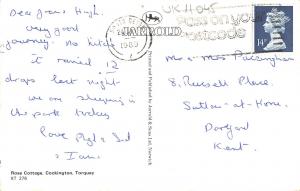 Dear Joan, Hugh.
Very good
journey. No hitches
it rained 12
drops last night
we are sleeping in
the park today
Love
Rose Cottage, Cockington, Torquay
KT 276
JARROLD
Printed and Published by Jarrold & Sons Ltd, Norwich
UK11045
Post on your
postcode
1989
14
Mr + Mrs
8, Russell Place,
Sutton-at-Hone,
Dartford
Kent.